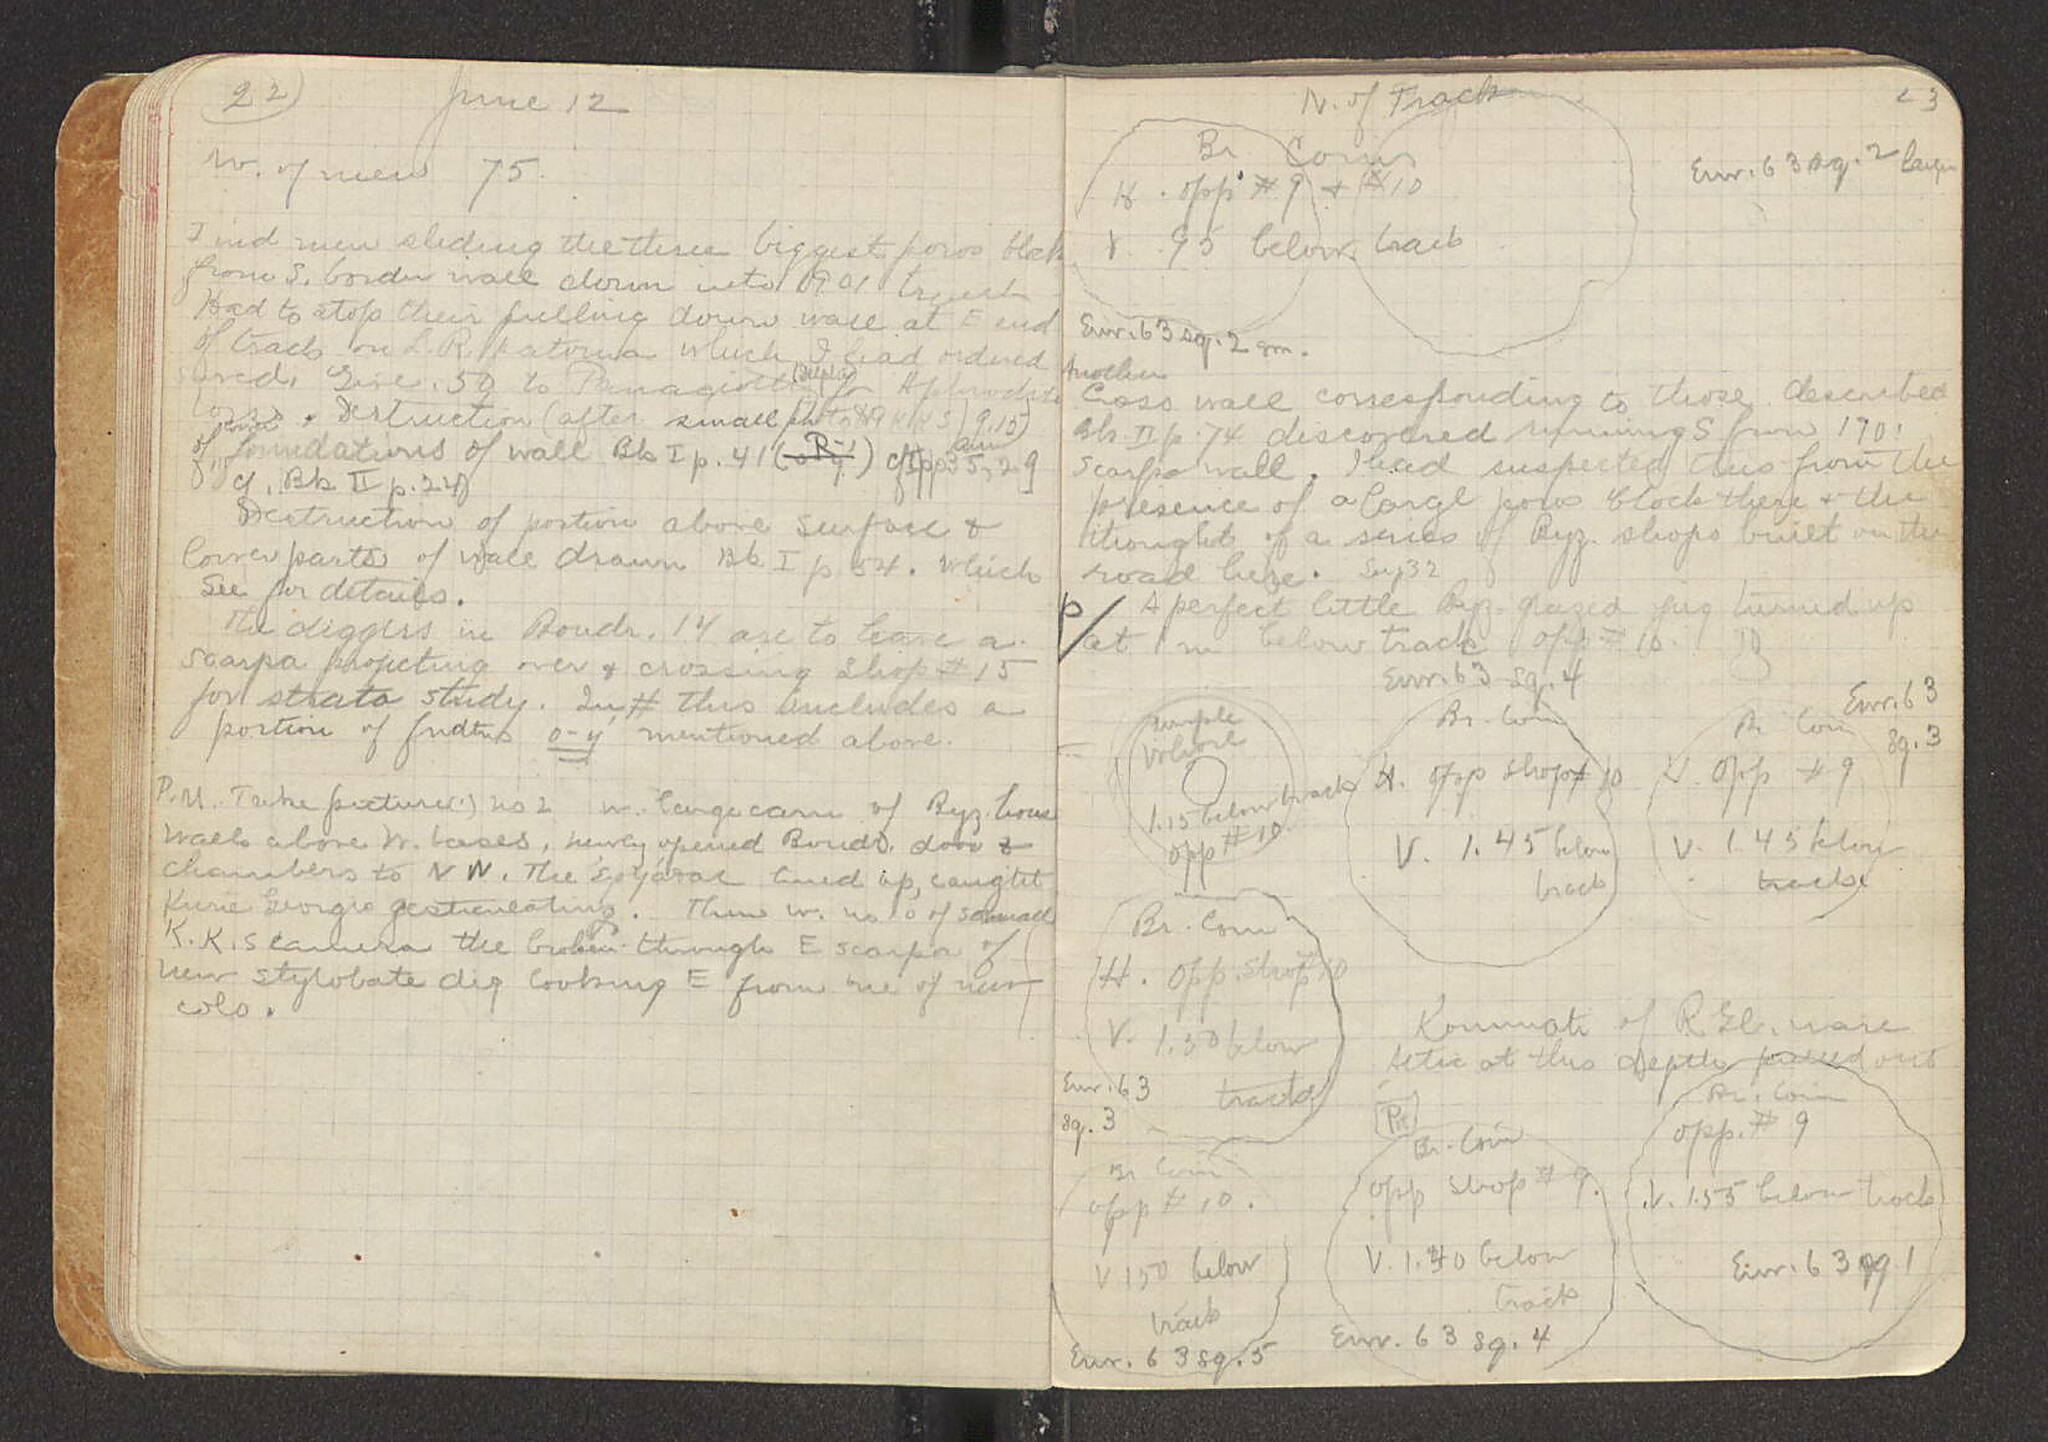 22
June 12
N. of men 75.
Find men sliding the three biggest poros block
from S. border wall down into 1901 trench
Had to stop their pulling down wall at E end
of track on L.R. Katouna which I had ordered
saved. Give .50 to Panagiotis for Aphrodite
torso. Destruction (after small photo #9 KKS) 9.15
of foundations of wall Bk I p. 41 (o-y) cf I pp 35, 29
cf. Bk II p. 24
Destruction of portion above surface &
lower parts of wall drawn Bk I p 54. which
see for details.
The diggers in Boudr. 14 are to leave a
scarpa projecting over & crossing Shop # 15
for strata study. In # this includes a
portion of fndtns o-y mentioned above.
P.M. Take picture no 2 w. large cam of Byz. house
walls above W. bases, newly opened Boudr. door &
chambers to N W. The ἐργάται lined up, caught
Kurie Georgio gesticulating. Then w. no 10 of small
K.K.S camera the broken through E scarpa of
new stylobate dig looking E from one of new
cols.
23
N. of Track
Br Coins
H. opp # 9 + # 10
V. .95 below track
Env. 63 sq. 2 large
Env. 63 sq. 2 sm.
Another
Cross wall corresponding to those described
Bk. II p. 74 discovered running S from 1901
scarpa wall. I had suspected this from the
presence of a large poros block there & the
thought of a series of Byz. shops built on the
road here. See p 32
P/ A perfect little Byz. glazed jug turned up
at 1 m below track opp # 10.
Env. 63 sq. 4
simple
whorl
1.15 below track
opp # 10
Br. Coin
H. opp shop # 10
V. 1.45 below
track
Env. 63
sq. 3
Br Coin
H. opp # 9
V. 1.45 below
track
Br. Coin
H. opp. shop # 10
V. 1.50 below
track
Env. 63
sq. 3
Kommati of R Gl. ware
Attic at this depth passed out
Br. Coin
opp. # 9
V. 1.55 below track
Env. 63 sq 1
Br Coin
opp # 10.
V 1.50 below
track
Env. 63 sq. 5
Pit
Br. Coin
opp shop # 9.
V. 1.40 below
track
Env. 63 sq. 4